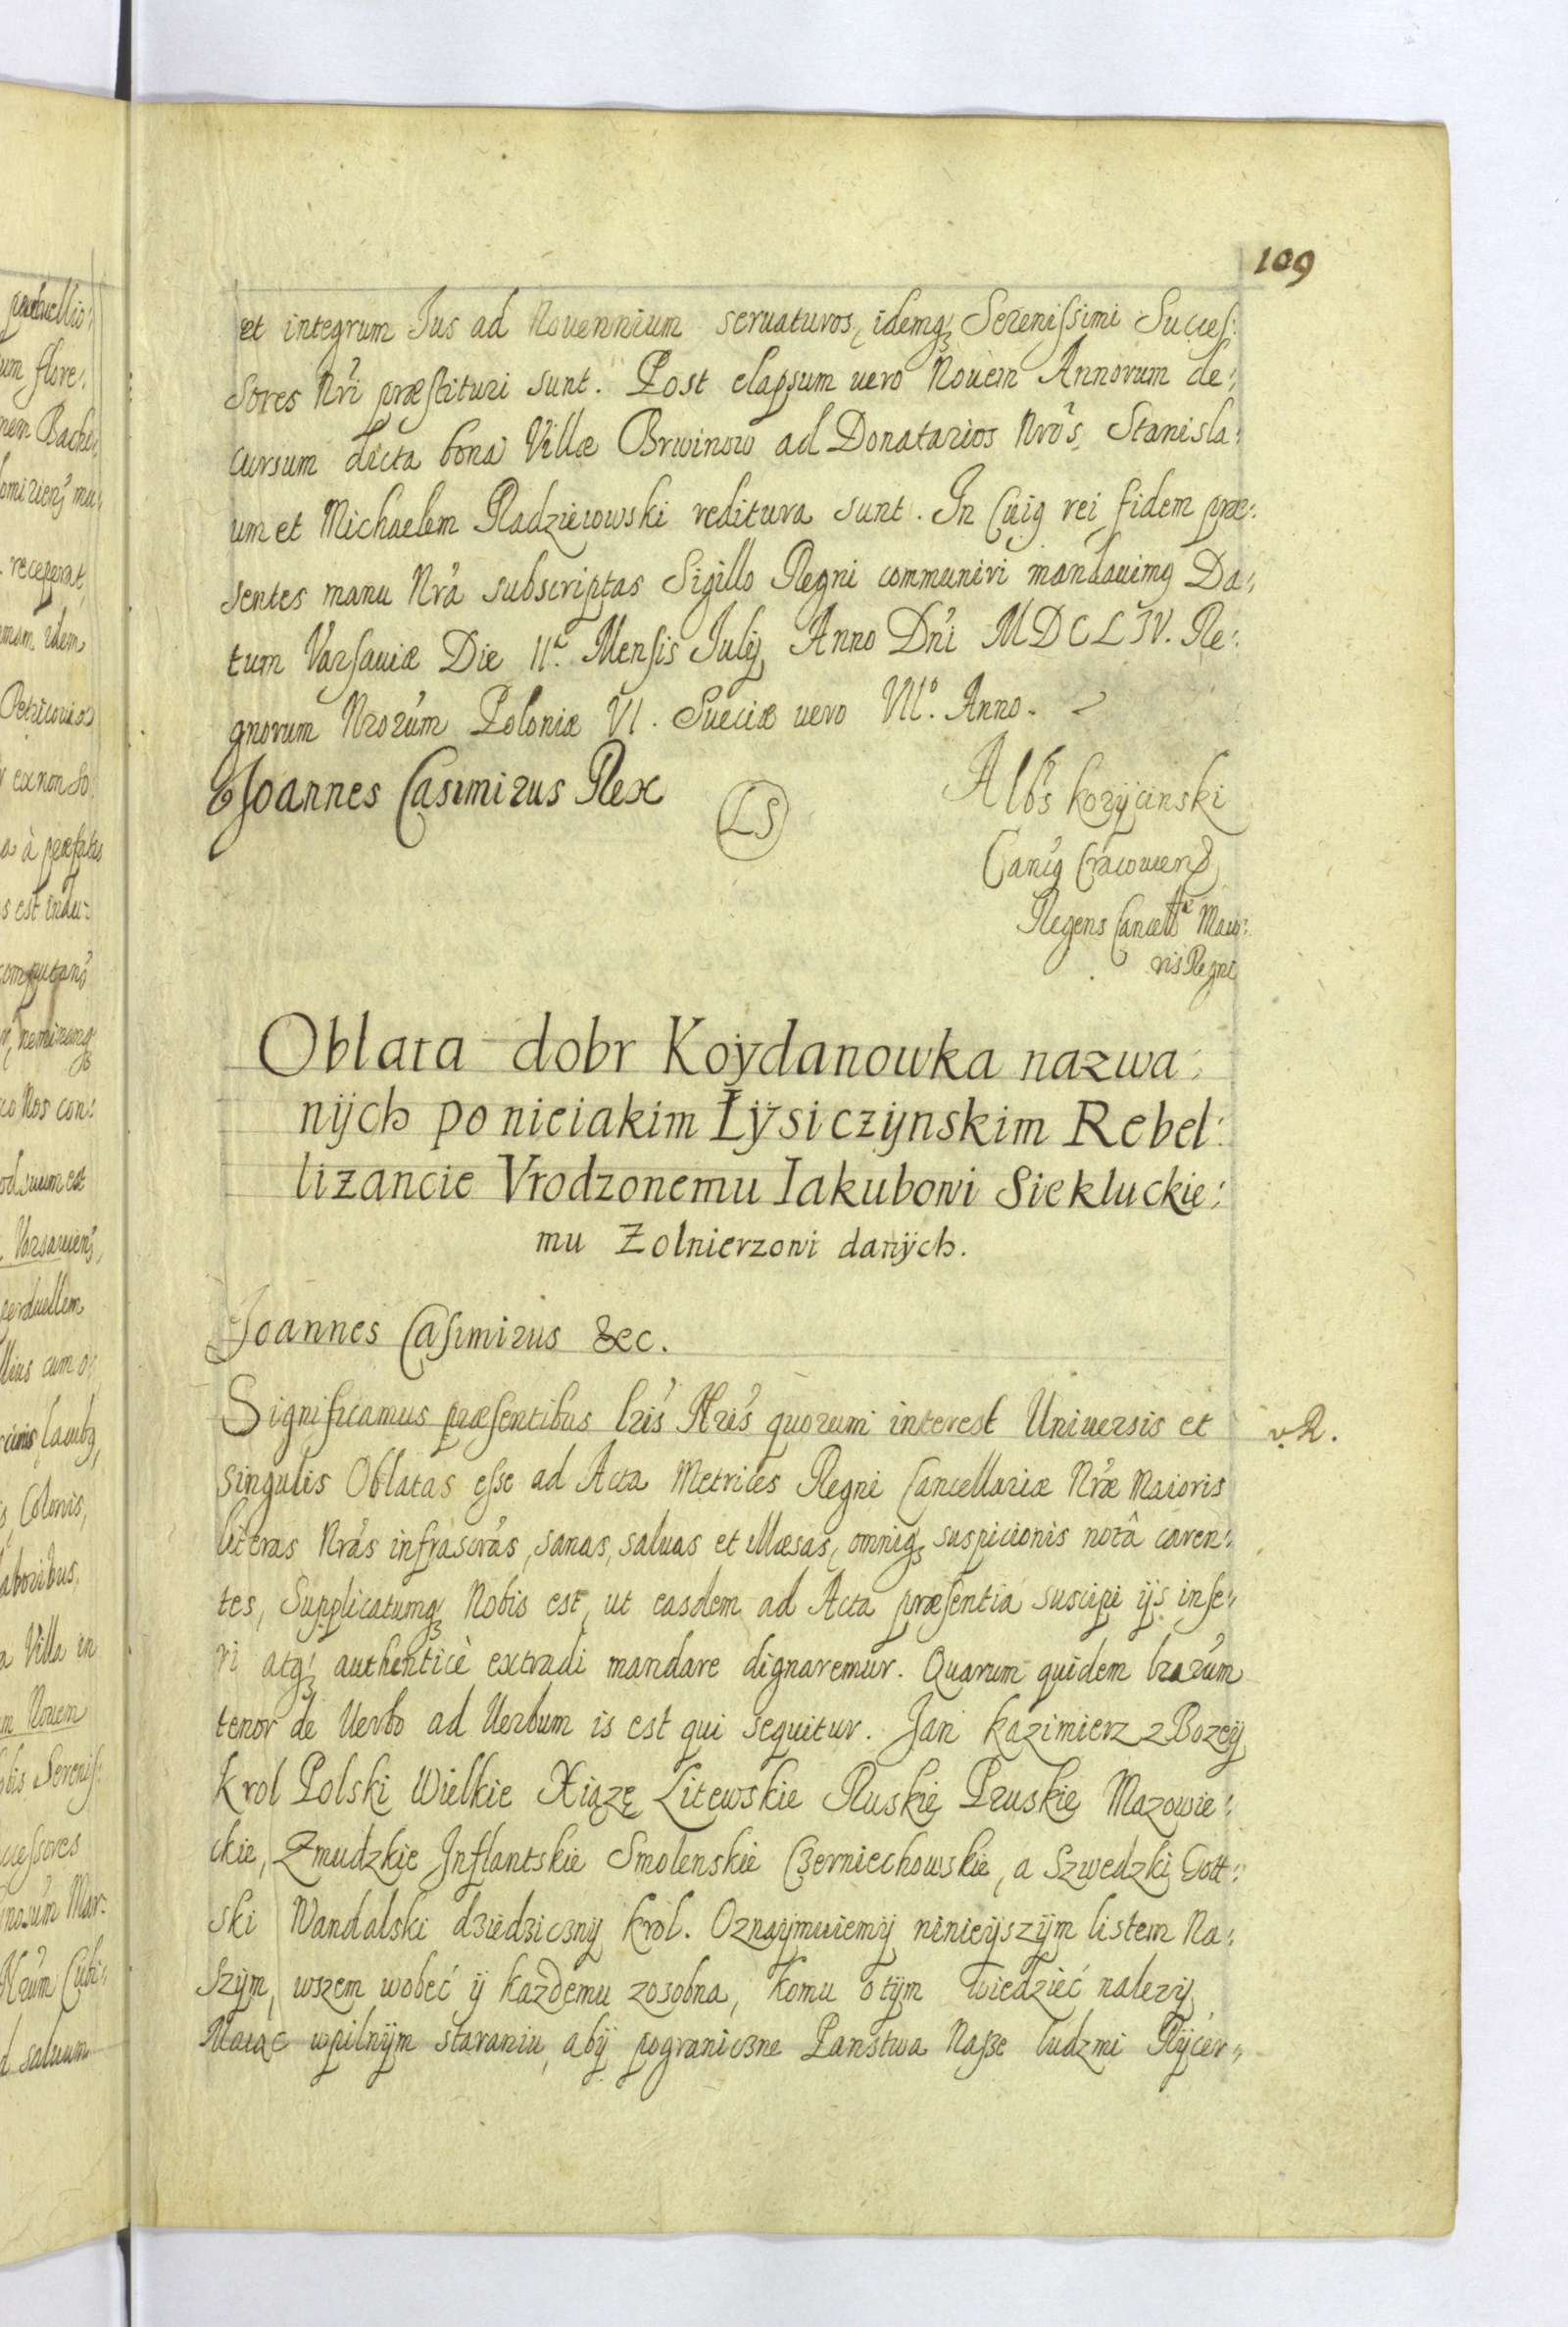 109
et integrum Ius ad Nouennium seruaturos, idemq₃ Serenissimi Succes:
sores Nr̃i præstituri sunt. Post elapsum uero Nouem Annorum de:
cursum dicta bona Villæ Brwinow ad Donatarios Nrõs Stanisla:
um et Michaelem Radzieiowski reditura sunt. In Cuiq rei fidem præ:
sentes manu Nrã subscriptas Sigillo Regni communiri mandauimq Da:
tum Varsauiæ Die 11.a Mensis Iulij Anno Dñi MDCLIV. Re:
gnorum Nrorũm Poloniæ VI. Sueciæ uero VII.o Anno.
Joannes Casimirus Rex
LS
Albs̃ Korÿcinski
Canĩq Cracouiens
Regens Cancellæ Maio:
ris Regni
Oblata dobr Koÿdanowka nazwa:
nÿch po nieiakim Łÿsiczÿnskim Rebel:
lizancie Vrodzonemu Iakubowi Siekluckie:
mu Zolnierzowi danÿch.
Joannes Casimirus &c.
Significamus præsentibus lris̃ Nris̃ quorum interest Uniuersis et
v. R.
singulis Oblatas esse ad Acta Metrices Regni Cancellariæ Nræ̃ Maioris
literas Nrãs infrascrãs, sanas, saluas et illæsas, omniq₃ suspicionis notâ caren:
tes, Supplicatumq₃ Nobis est, ut easdem ad Acta præsentia suscipi ijs inse:
ri atq₃ authenticè extradi mandare dignaremur. Quarum quidem lrarũm
tenor de Uerbo ad Uerbum is est qui sequitur. Jan Kazimierz z Bozeÿ
Krol Polski Wielkie Xiązę Litewskie Ruskię Pruskię Mazowie:
ckie, Zmudzkie Inflantskie Smolenskie Czerniechowskie, a Szwedzki Gott:
ski Wandalski dziedzicznÿ Krol. Oznaÿmuiemÿ ninieÿszÿm listem Na:
szÿm, wszem wobeć ÿ każdemu zosobna, komu o tÿm wiedzieć nalezÿ
Maiąc wpilnÿm staraniu, abÿ pograniczne Panstwa Nasze ludzmi Rÿcer: